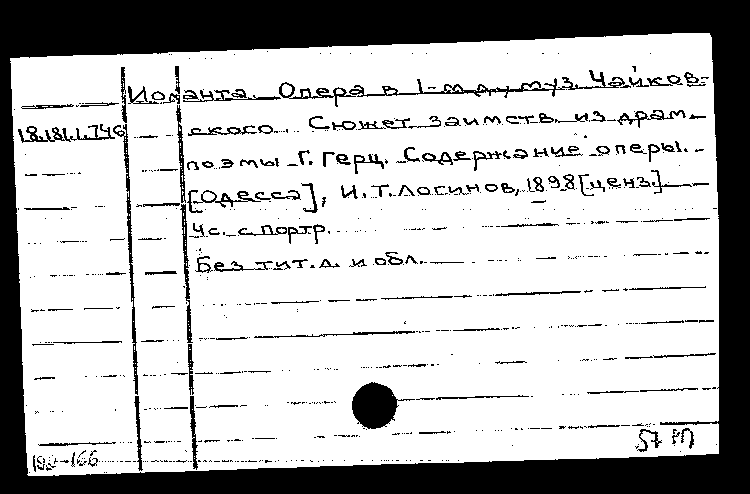 Иоланта. Опера в 1-м д. муз. Чайков-
18.181.1.746 ского. Сюжет заимств. из драм.
поэмы Г. Герц. Содержание оперы. -
[Одесса], И.Т. Логинов, 1898 [ценз.].
4с. с портр.
Без тит. л. и обл.
57 РП